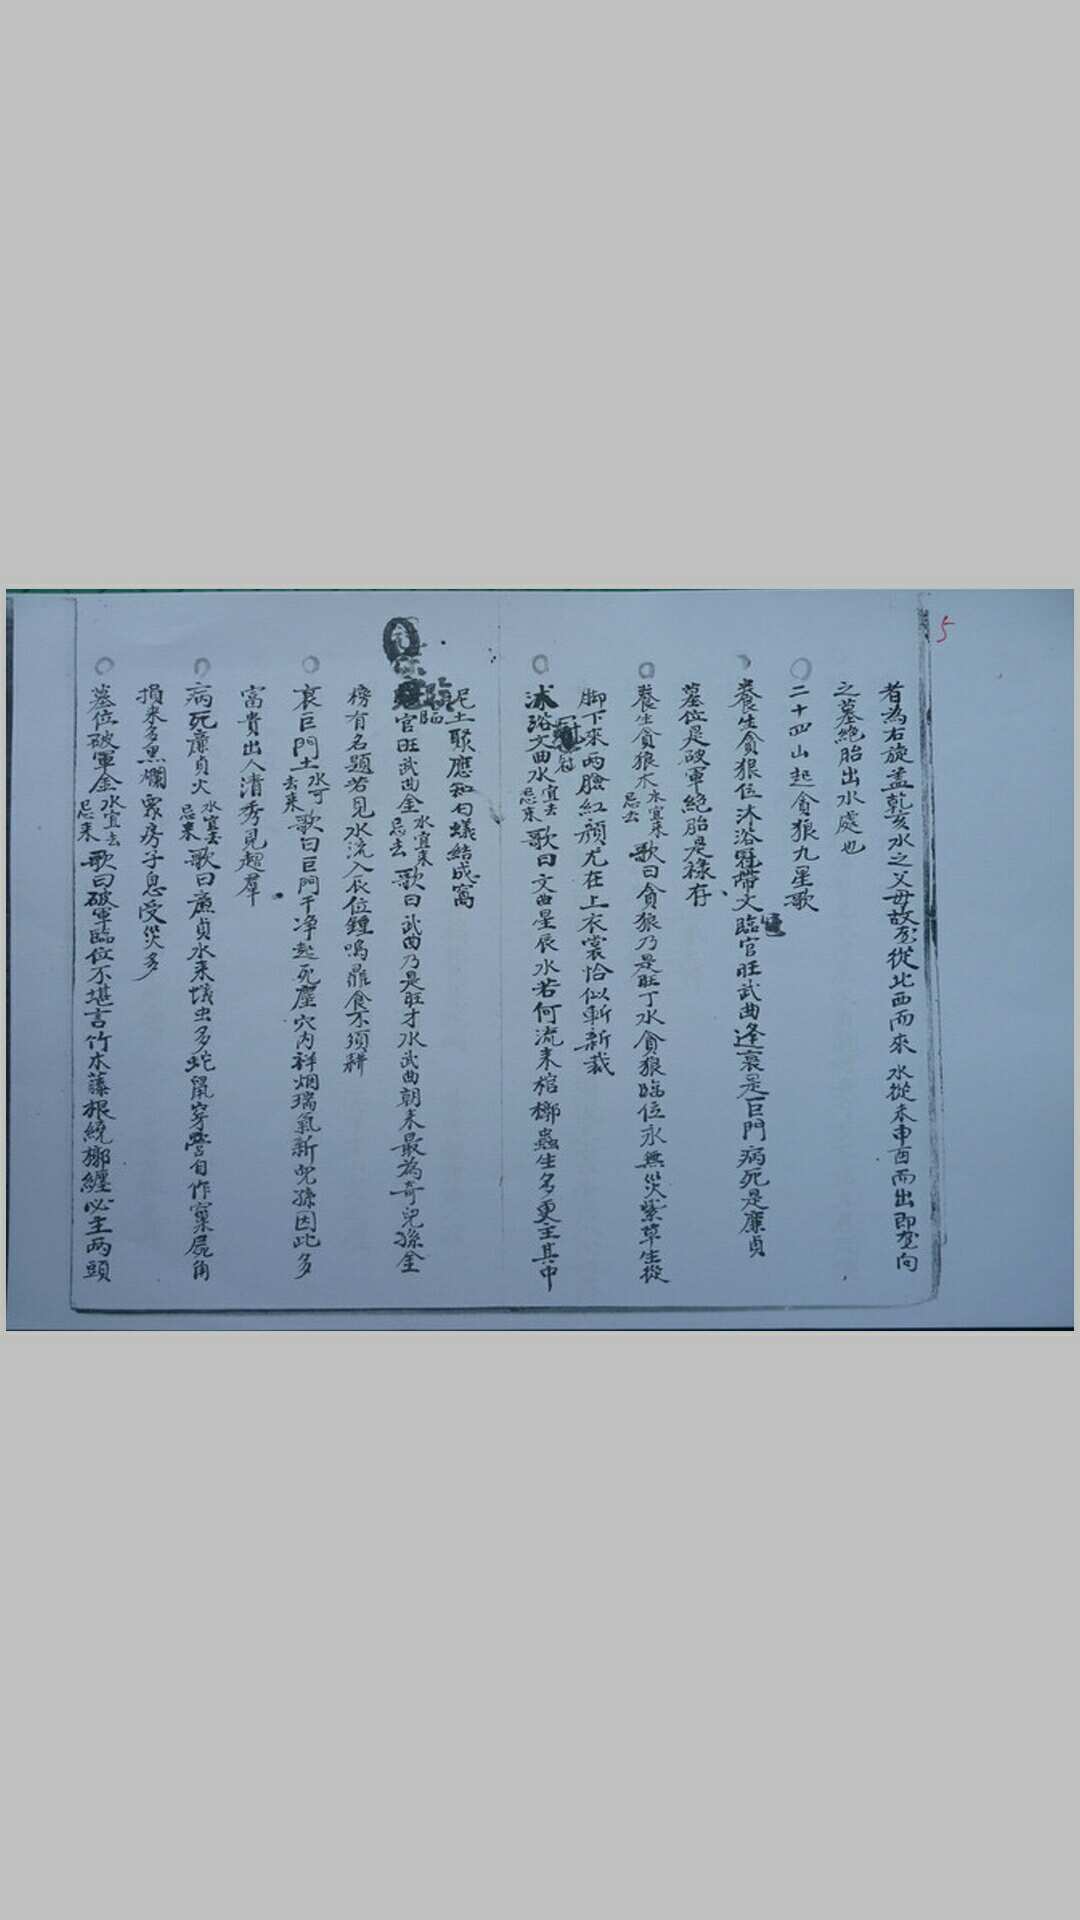 5
者為右旋盖乾亥水之父母故龙從北西而來水從未申酉而出即龙向
之墓絶胎出水處也
二十四山起貪狼九星歌
養生貪狼位沐浴冠帶文臨官旺武曲逢衰是巨門病死是廉貞
墓位是破軍絕胎是祿存、
養生貪狼木水宜來忌去歌曰貪狼乃是旺丁水貪狼臨位永無災紫草生從
脚下來両臉紅顔尤在上衣裳恰似斬新裁
沐浴文曲水宜去忌來歌曰文曲星辰水若何流来棺槨蟲生多更主其中
坭土聚應知勾蟻結成窩
臨官旺武曲金水宜來忌去歌曰武曲乃是旺才水武曲朝来最為奇兒孫金
榜有名題若見水流入辰位鍾鳴鼎食不須
衰巨門土水可去來歌曰巨門干净起死塵穴內祥烟瑞氣新兒孫因此多
富貴出人清秀見超羣
病死廉貞火水宜去忌來歌曰廉貞水来蟻虫多蛇鼠穿塋自作窠屍角
損来多黑爛房子息受災多
墓位破軍金水宜去忌来歌曰破軍臨位不堪言竹木藤根繞槨纏必主両頭